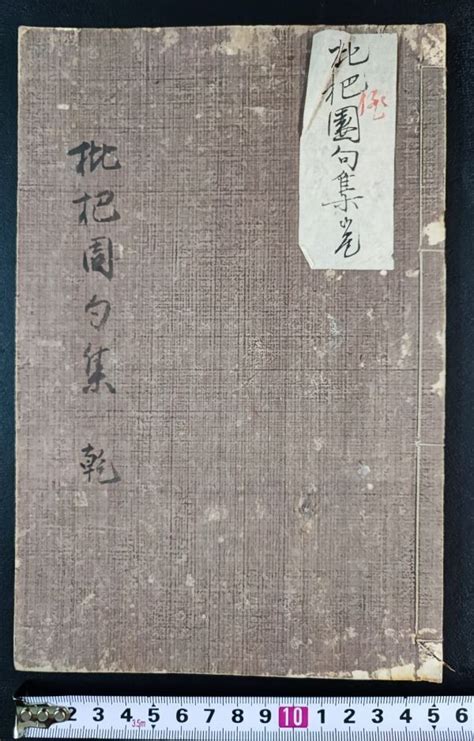 枇杷園句集
枇杷園句集 乾
2 3 4 5 6 7 8 9 10 1 2 3 4 5 6
3.5m